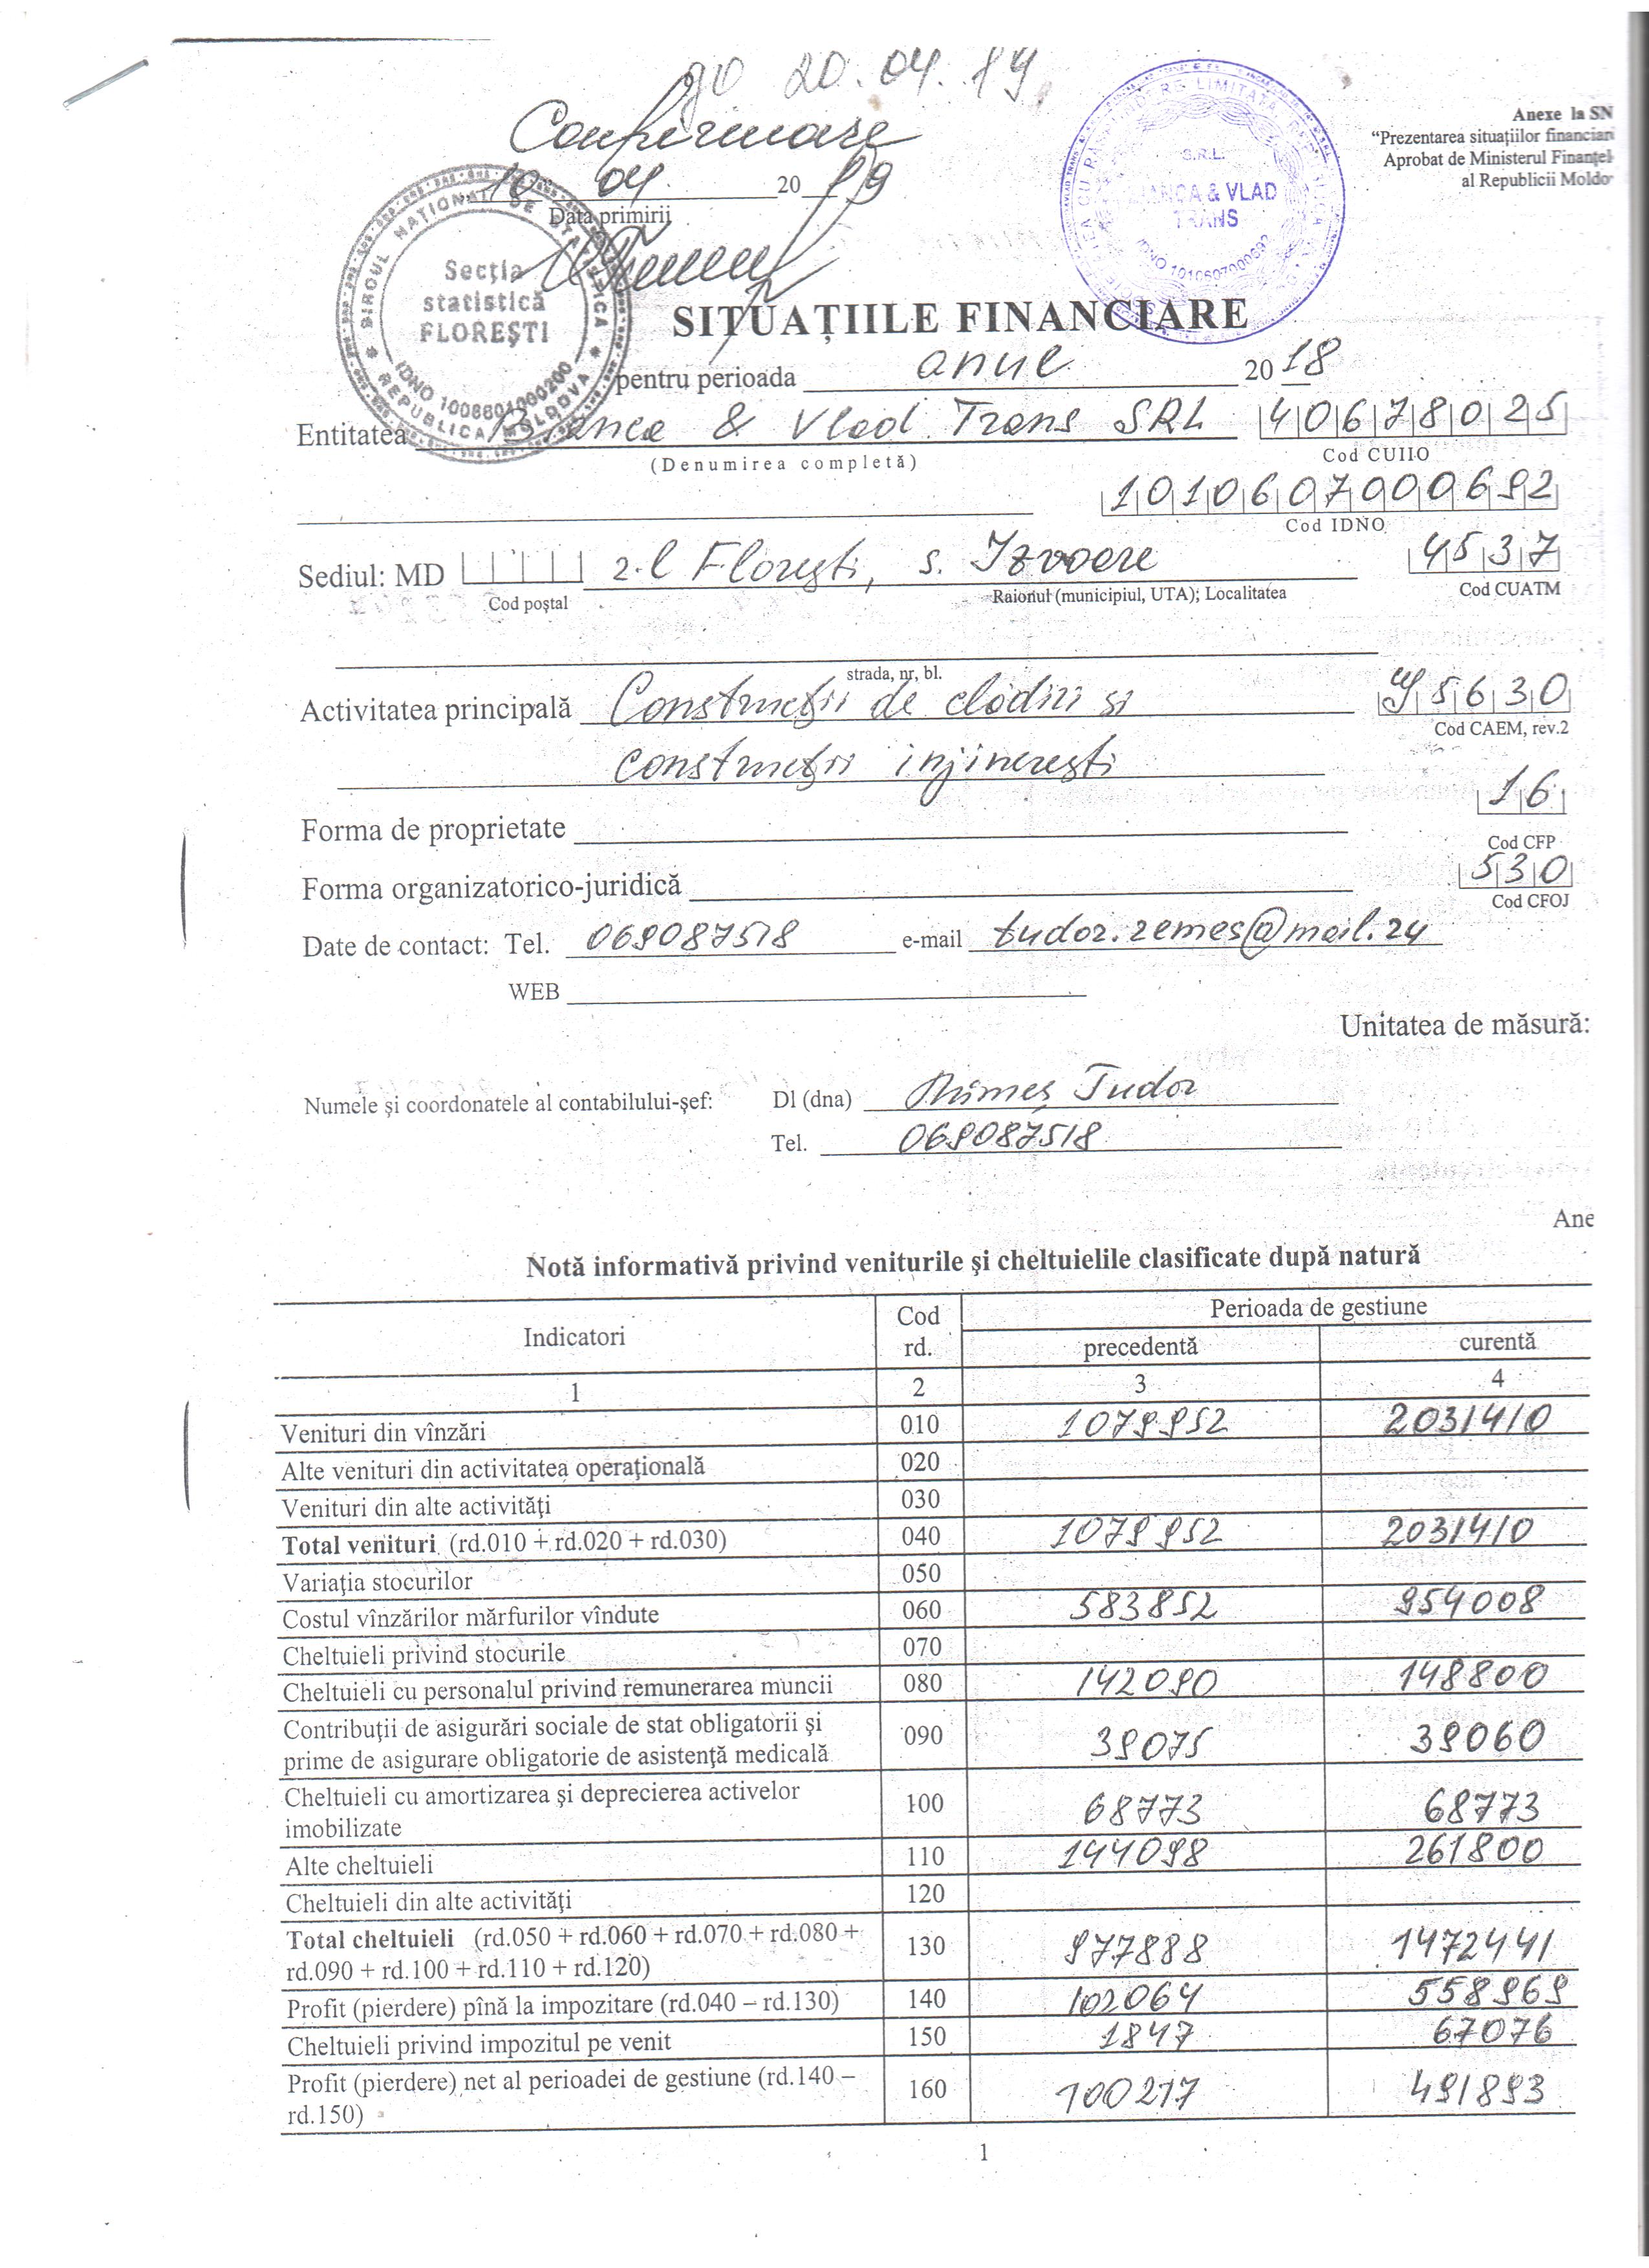 до 20.04.19
Confirmare
Anexe la SN
"Prezentarea situațiilor financiar
Aprobat de Ministerul Finanțel
al Republicii Moldo
10 04 2019
Data primirii
BIROUL NAȚIONAL DE STATISTICA
REPUBLICA MOLDOVA
IDNO 1006601000200
Secția
statistică
FLOREȘTI
S.R.L.
BIANCA & VLAD
TRANS
IDNO 1010607000692
SITUAȚIILE FINANCIARE
pentru perioada anul 2018
Entitatea Bianca & Vlad Trans SRL 40678025
(Denumirea completă) Cod CUIIO
1010607000692
Cod IDNO
Sediul: MD r-l Florești, s. Izvoare 4537
Cod poștal Raionul (municipiul, UTA); Localitatea Cod CUATM
strada, nr, bl.
Activitatea principală Construcții de clădiri și 5630
Cod CAEM, rev.2
construcții injinerești
16
Forma de proprietate
Cod CFP
Forma organizatorico-juridică 530
Cod CFOJ
Date de contact: Tel. 069087518 e-mail tudor.remes@mail.ru
WEB
Unitatea de măsură:
Numele și coordonatele al contabilului-șef: Dl (dna) Tudor
Tel. 069087518
Ane
Notă informativă privind veniturile și cheltuielile clasificate după natură
Indicatori Cod rd. Perioada de gestiune
precedentă curentă
1 2 3 4
Venituri din vînzări 010 1079952 2031410
Alte venituri din activitatea operațională 020
Venituri din alte activități 030
Total venituri (rd.010 + rd.020 + rd.030) 040 1079952 2031410
Variația stocurilor 050
Costul vînzărilor mărfurilor vîndute 060 583852 954008
Cheltuieli privind stocurile 070
Cheltuieli cu personalul privind remunerarea muncii 080 142090 148800
Contribuții de asigurări sociale de stat obligatorii și
prime de asigurare obligatorie de asistență medicală 090 39075 39060
Cheltuieli cu amortizarea și deprecierea activelor
imobilizate 100 68773 68773
Alte cheltuieli 110 144098 261800
Cheltuieli din alte activități 120
Total cheltuieli (rd.050 + rd.060 + rd.070 + rd.080 +
rd.090 + rd.100 + rd.110 + rd.120) 130 977888 1472441
Profit (pierdere) pînă la impozitare (rd.040 – rd.130) 140 102064 558969
Cheltuieli privind impozitul pe venit 150 1847 67076
Profit (pierdere) net al perioadei de gestiune (rd.140 –
rd.150) 160 100217 491893
1